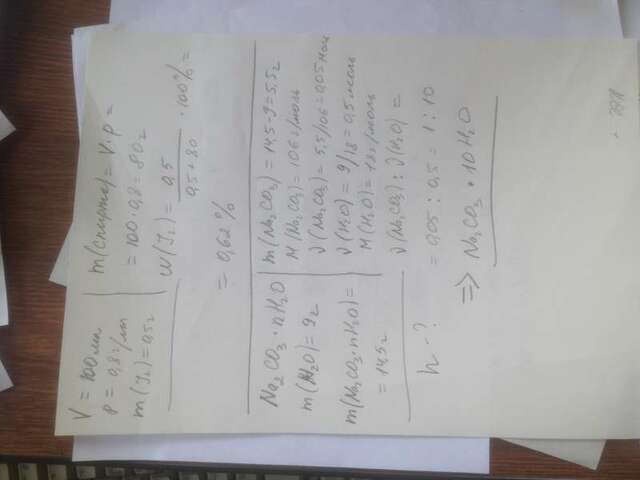 V = 100 мл
ρ = 0,8 г/мл
m(I₂) = 0,5 г
m(спирта) = V · ρ =
= 100 · 0,8 = 80 г
ω(I₂) = 0,5 / 0,5 + 80 · 100% =
= 0,62 %
Na₂CO₃ · nH₂O
m(H₂O) = 9 г
m(Na₂CO₃ · nH₂O) =
= 14,5 г
n - ?
m(Na₂CO₃) = 14,5 - 9 = 5,5 г
M(Na₂CO₃) = 106 г/моль
ν(Na₂CO₃) = 5,5/106 = 0,05 моль
ν(H₂O) = 9/18 = 0,5 моль
M(H₂O) = 18 г/моль
ν(Na₂CO₃) : ν(H₂O) =
= 0,05 : 0,5 = 1 : 10
⇒ Na₂CO₃ · 10 H₂O